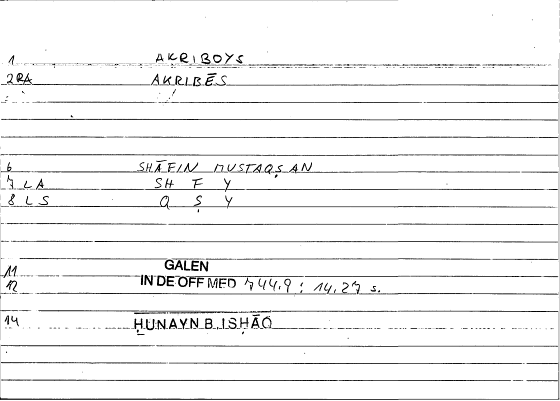 1 AKRIBOYS
2 RA AKRIBĒS
6 SHĀFIN MUSTAQṢAN
7 LA SH F Y
8 LS Q Ṣ Y
11 GALEN
12 IN DE OFF MED 744.9 : 14.27 s.
14 ḤUNAYN B. ISḤĀQ